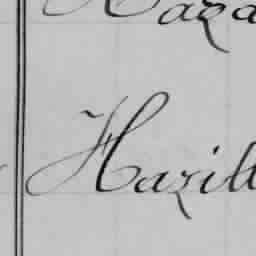 Haza
Hazill